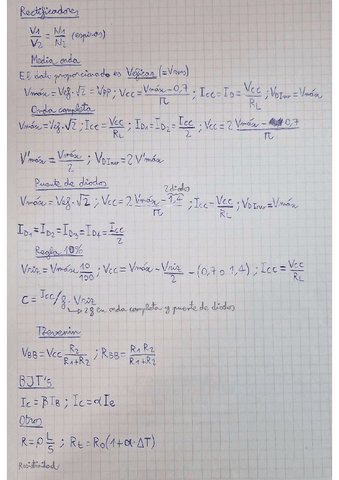 Rectificadores
V1/V2 = N1/N2 (espiras)
Media onda
El dato proporcionado es Veficaz (=Vrms)
Vmáx = Vef·√2 = Vpp ; Vcc = (Vmáx - 0,7)/π ; Icc = ID = Vcc/RL ; VDInv = Vmáx
Onda completa
Vmáx = Vef·√2 ; Icc = Vcc/RL ; ID1 = ID2 = Icc/2 ; Vcc = 2 (Vmáx - 0,7)/π
V'máx = Vmáx/2 ; VDInv = 2 V'máx
Puente de diodos
2 diodos
Vmáx = Vef·√2 ; Vcc = 2 (Vmáx - 1,4)/π ; Icc = Vcc/RL ; VDInv = Vmáx
ID1 = ID2 = ID3 = ID4 = Icc/2
Regla 10%
Vriz = Vmáx 10/100 ; Vcc = Vmáx - Vriz/2 - (0,7 o 1,4) ; Icc = Vcc/RL
C = Icc/f·Vriz
→ 2f en onda completa y puente de diodos
Tzevenin
VBB = Vcc R2/(R1+R2) ; RBB = R1·R2/(R1+R2)
BJT's
Ic = β IB ; Ic = α Ie
Otros
R = ρ L/S ; Rt = R0(1+α·ΔT)
Resistividad